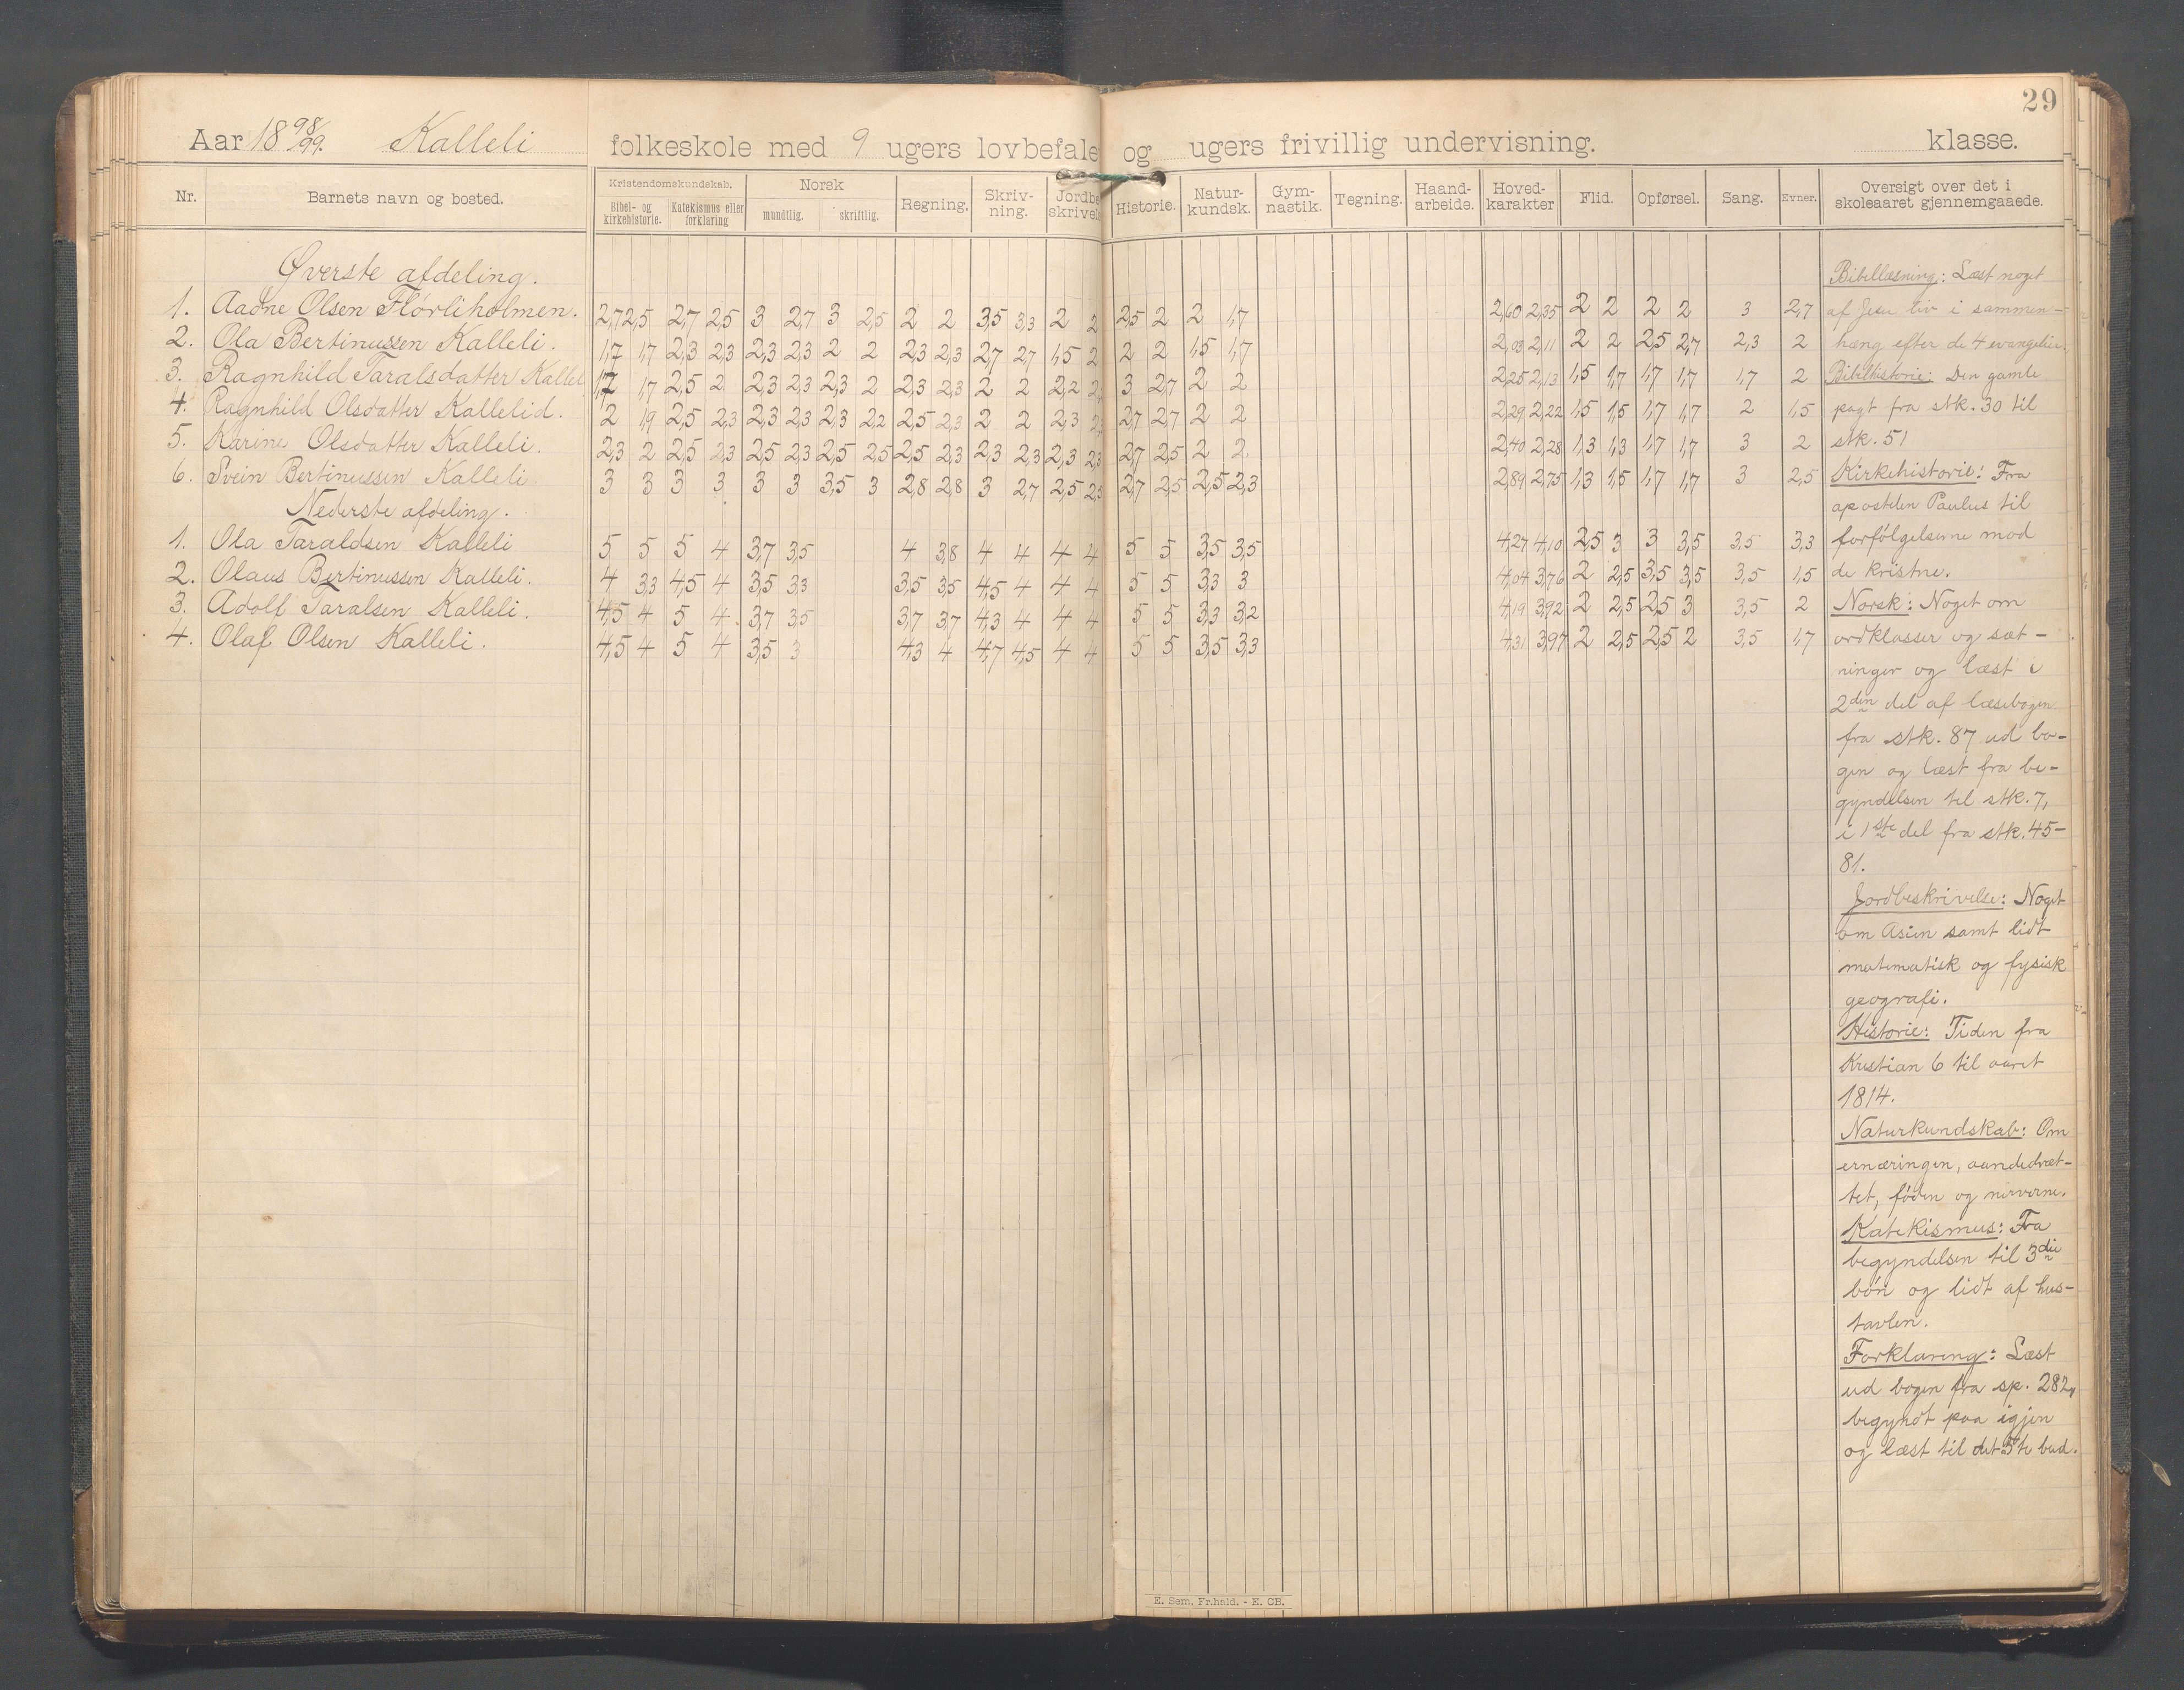 29
Aar 18 98/99. Kalleli folkeskole med 9 ugers lovbefale og ugers frivillig undervisning. klasse.
Nr. Barnets navn og bosted. Kristendomskundskab. Bibel- og kirkehistorie. Katekismus eller forklaring Norsk mundtlig. skriftlig. Regning. Skriv-ning. Jordbe skrivels Historie. Natur-kundsk. Gym-nastik. Tegning. Haand-arbeide. Hoved-karakter Flid. Opførsel. Sang. Evner. Oversigt over det i skoleaaret gjennemgaaede.
Øverste afdeling.
1. Aadne Olsen Flørliholmen. 2,7 2,5 2,7 2,5 3 2,7 3 2,5 2 2 3,5 3,3 2 2 2,5 2 2 1,7 2,60 2,35 2 2 2 2 3 2,7
2. Ola Bertinussen Kalleli. 1,7 1,7 2,3 2,3 2,3 2,3 2 2 2,3 2,3 2,7 2,7 1,5 2 2 2 1,5 1,7 2,03 2,11 2 2 2,5 2,7 2,3 2
3. Ragnhild Taralsdatter Kallel 1,7 1,7 2,5 2 2,3 2,3 2,3 2 2,3 2,3 2 2 2,2 3 2,7 2 2 2,25 2,13 1,5 1,7 1,7 1,7 1,7 2
4. Ragnhild Olsdatter Kallelid. 2 1,9 2,5 2,3 2,3 2,3 2,3 2,2 2,5 2,3 2 2 2,3 2,7 2,7 2 2 2,29 2,22 1,5 1,5 1,7 1,7 2 1,5
5. Karine Olsdatter Kalleli. 2,3 2 2,5 2,3 2,5 2,3 2,5 2,5 2,5 2,3 2,3 2,3 2,3 2,3 2,7 2,5 2 2 2,40 2,28 1,3 1,3 1,7 1,7 3 2
6. Svein Bertinussen Kalleli 3 3 3 3 3 3 3,5 3 2,8 2,8 3 2,7 2,5 2,5 2,7 2,5 2,5 2,3 2,89 2,75 1,3 1,5 1,7 1,7 3 2,5
Nederste afdeling.
1. Ola Taraldsen Kalleli 5 5 5 4 3,7 3,5 4 3,8 4 4 4 4 5 5 3,5 3,5 4,27 4,10 2,5 3 3 3,5 3,5 3,3
2. Olaus Bertinussen Kalleli. 4 3,3 4,5 4 3,5 3,3 3,5 3,5 4,5 4 4 4 5 5 3,3 3 4,04 3,76 2 2,5 3,5 3,5 3,5 1,5
3. Adolf Taralsen Kalleli. 4,5 4 5 4 3,7 3,5 3,7 3,7 4,3 4 4 4 5 5 3,3 3,2 4,19 3,92 2 2,5 2,5 3 3,5 2
4. Olaf Olsen Kalleli. 4,5 4 5 4 3,5 3 4,3 4 4,7 4,5 4 4 5 5 3,5 3,3 4,31 3,97 2 2,5 2,5 2 3,5 1,7
Bibellæsning: Læst noget
af Jesu liv i sammen-
hæng efter de 4 evangelier.
Bibelhistorie: Den gamle
pagt fra stk. 30 til
stk. 51
Kirkehistorie: Fra
apostelen Paulus til
forfölgelserne mod
de kristne.
Norsk: Noget om
ordklasser og sæt-
ninger og læst i
2den del af læsebogen
fra stk. 87 ud bo-
gen og læst fra be-
gyndelsen til stk. 7,
i 1ste del fra stk. 45-
81.
Jordbeskrivelse: Noget
om Asien samt lidt
matematisk og fysisk
geografi.
Historie: Tiden fra
Kristian 6 til aaret
1814.
Naturkundskab: Om
ernæringen, aandedræt-
tet, föden og nerverne.
Katekismus: Fra
begyndelsen til 3die
bön og lidt af hus-
tavlen.
Forklaring: Læst
ud bogen fra sp. 282,
begyndt paa igjen
og læst til det 5te bud.
E. Sem, Fr.hald. - E. CB.